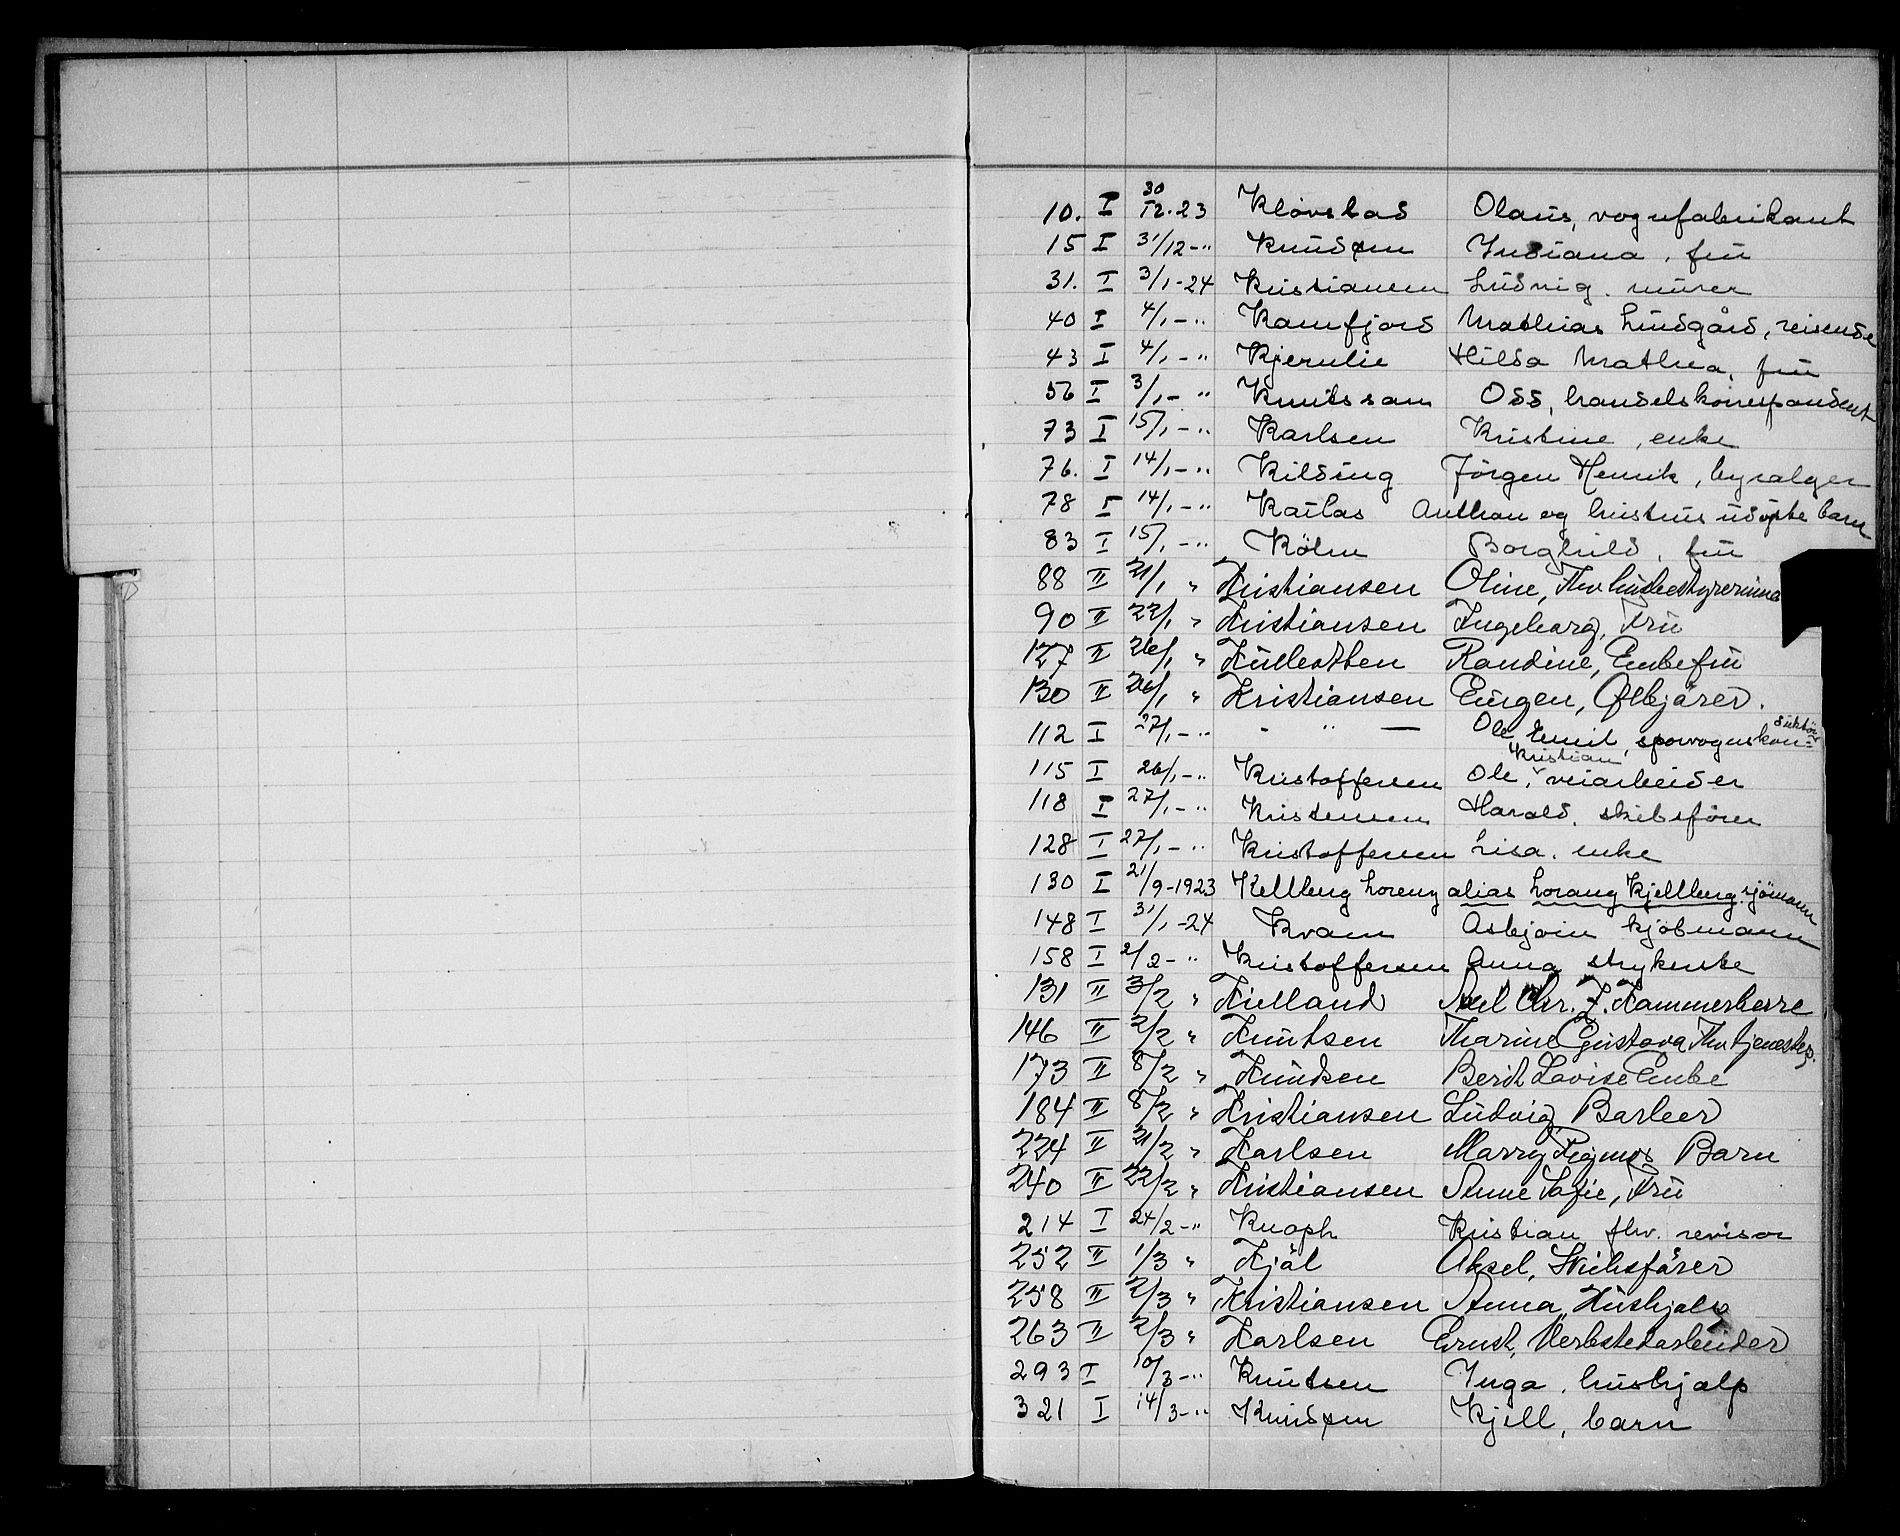 10. I 30/12-23 Klövstad Olaus, vognfabrikant
15 I 31/12-" Knudsen Indiana, fru
31. I 3/1-24 Kristiansen Ludvig. murer
40 I 4/1-" Kamfjord Mathias Lindgård, reisende
43 I 4/1-" Kjerulie Hilda Mathea, fru
56 I 3/1-" Knutssøn Odd, handelskorrespondent
73 I 15/1-" Karlsen Kristine, enke
76. I 14/1-" Kilding Jörgen Henrik, byselger
78 I 14/1-" Kaitas Anthon og hustrus udøpte barn
83 I 15/1-" Köhn Borghild, fru
88 II 21/1 " Kristiansen Oline, Fhv
90 II 22/1 " Kristiansen Ingeborg, Fru
127 II 26/1 " Randine, Enkefru
130 II 26/1 " Kristiansen Eugen, Ølkjører.
112 I 27/1-" - " — Ole Emil, sporvognskon=duktör
115 I 26/1-" Kristoffersen Ole Kristian, veiarbeider
118 I 27/1-" Kristensen Harald, skibsförer
128 I 27/1-" Kristoffersen Lisa. enke
130 I 21/9-1923 Kellberg Lorenz alias Lorang Kjellberg. sjömann
148 I 31/1-24 Kvam Asbjörn kjöbmann
158 I 2/2-" Kristoffersen Anna strykerske
131 II 3/2 " Kielland Axel Chr. Z. Kammerherre
146 II 2/2 " Knutsen Tharine Gustava Fhv tjenestep.
173 II 8/2 " Knudsen Berit Lovise Enke
184 II 8/2 " Kristiansen Ludvig Barber
224 II 21/2 " Karlsen Marry Barn
240 II 22/2 " Kristiansen Anne Sofie, Fru
214 I 24/2-" Knoph Kristian fhv. revisor
252 II 1/3 " Kjöl Aksel, Skibsförer
258 II 2/3 " Kristiansen Anna, Hushjelp
263 II 2/3 " Karlsen Ernst, Verkstedarbeider
293 I 10/3-" Knutsen Inga, hushjalp
321 I 14/3-" Knudsen Kjell, barn